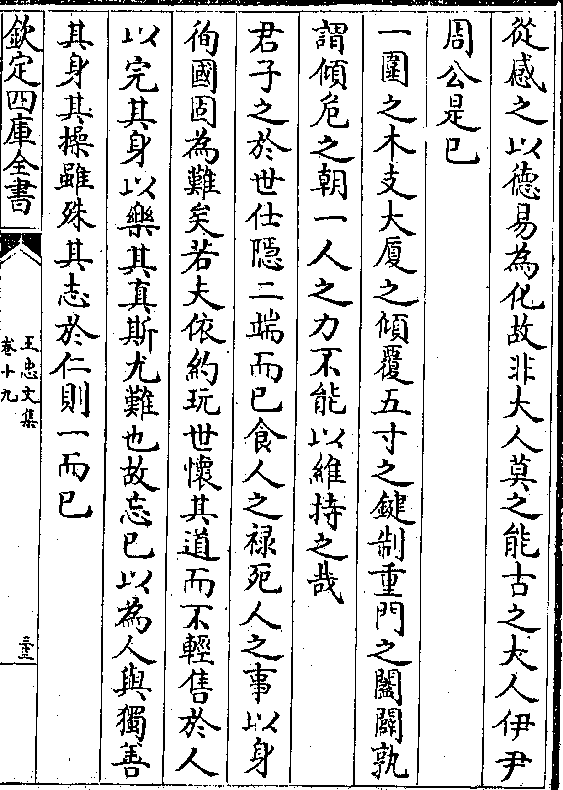 從感之以德易為化故非大人莫之能古之大人伊尹
周公是已
一圍之木支大厦之傾覆五寸之鍵制重門之闔闢孰
謂傾危之朝一人之力不能以維持之哉
君子之於世仕隱二端而已食人之禄死人之事以身
徇國固為難矣若夫依約玩世懷其道而不輕售於人
以完其身以樂其真斯尤難也故忘已以為人與獨善
其身其操雖殊其志於仁則一而已
欽定四庫全書
王忠文集
卷十九